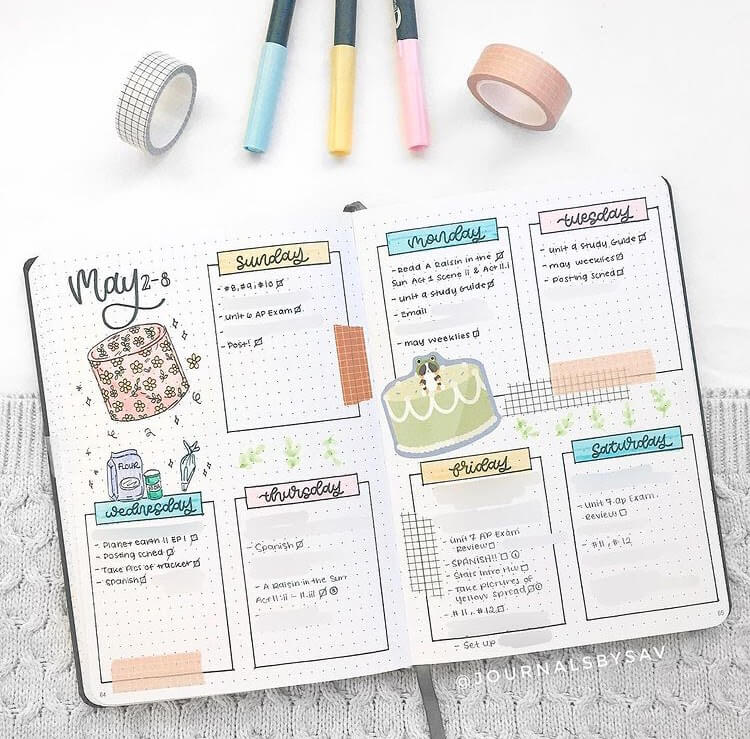 May 2-8
sunday
- #8, #9, #10
- unit 6 AP Exam
- Post!
monday
- Read A Raisin in the
Sun Act 1 Scene ii & Act II.i
- unit 9 study Guide
- Email
- may weeklies
tuesday
- unit 9 study Guide
- may weeklies
- Posting sched
FLOUR
wednesday
- Planet earth II EP 1
- Posting sched
- Take Pics of tracker
- Spanish
thursday
- Spanish
- A Raisin in the Sun
Act II:ii - II.iii
friday
- unit 7 AP Exam
Review
- SPANISH!!
- Stats Intro HW
- Take pictures of
Yellow spread
- #11, #12
- Set up
saturday
- unit 7 ap Exam
Review
- #11, #12
64
65
@JOURNALSBYSAV